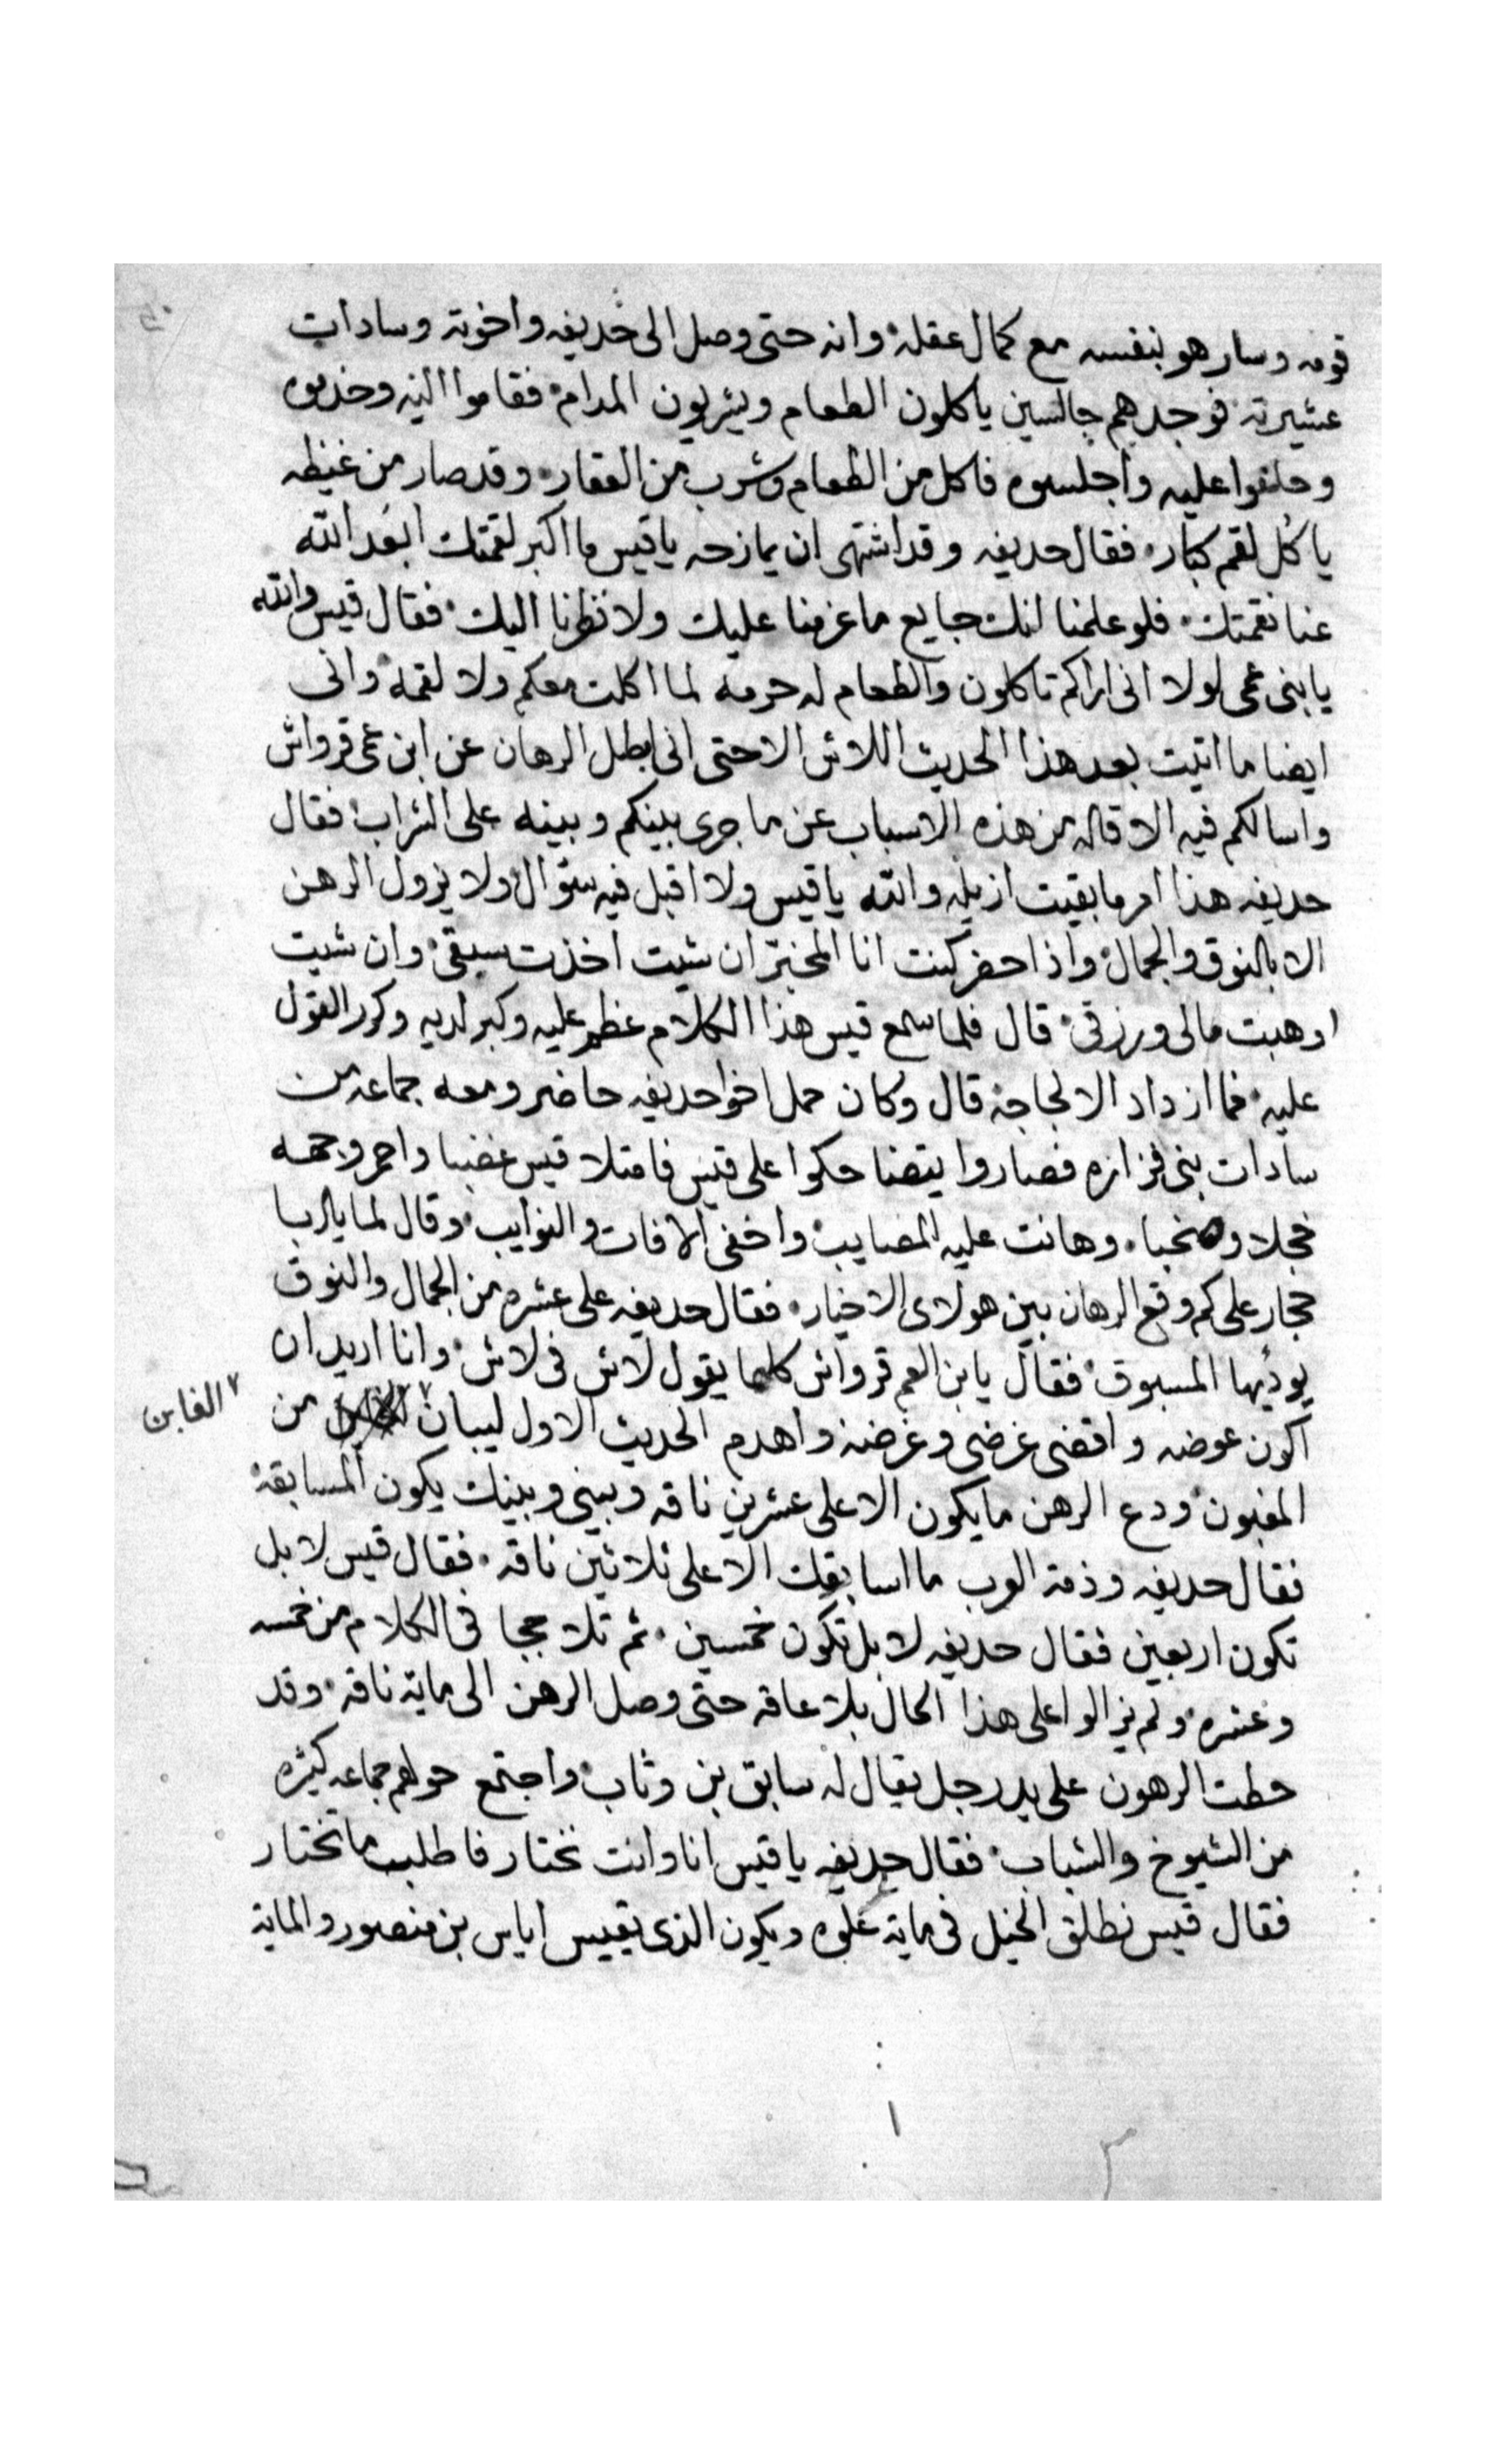 قومه وسار هو بنفسه مع كمال عقله وانه حتى وصل الى حديفه واخوته وسادات
عشيرته فوجدهم جالسين ياكلون الطعام ويشربون المدام فقاموا اليه وخدموه
وحلفوا عليه واجلسوه فاكل من الطعام وشرب من العقار وقد صار من غيظه
ياكل لقم كبار فقال حديفه وقد اشتهى ان يمازحه ياقيس ما اكبر لقمتك ابعد الله
عنا نقمتك فلو علمنا انك جايع ما عزمنا عليك ولا نظرنا اليك فقال قيس والله
يابنى عمى لولا انى اراكم تاكلون والطعام له حرمه لما اكلت معكم ولا لقمه وانى
ايضا ما اتيت بعد هذا الحديث اللاش الا حتى انى ابطل الرهان عن ابن عمى قرواش
واسالكم فيه الاقاله من هذه الاسباب عن ما جرى بينكم وبينه على الشراب فقال
حديفه هذا امر مابقيت ازيله والله ياقيس ولا اقبل فيه سؤال ولا يزول الرهن
الا بالنوق والجمال واذا حضر كنت انا المخير ان شيت اخذت سبقى وان شيت
اوهبت مالى ورزقى قال فلما سمع قيس هذا الكلام عظم عليه وكبر لديه وكرر القول
عليه فما ازداد الا لجاجه قال وكان حمل اخوا حديفه حاضر ومعه جماعه من
سادات بنى فزاره فصاروا يتضاحكوا على قيس فامتلا قيس غضبا واحمر وجهه
خجلا وهانت عليه المصايب واخفى الافات والنوايب وقال لما
حجار على كم وقع الرهان بين هولاى الاخيار فقال حديفه على عشره من الجمال والنوق
يوديها المسبوق فقال يابن العم قرواش كلما يقول لاش فى لاش وانا اريد ان
اكون عوضه واقضى غرضى وغرضه واهدم الحديث الاول ليبان من
الغابن
المغبون ودع الرهن ما يكون الا على عشرين ناقه وبينى وبينك يكون المسابقه
فقال حديفه وذمة العرب ما اسابقك الا على ثلاثين ناقه فقال قيس لا بل
تكون اربعين فقال حديفه لا بل تكون خمسين ثم تلاججا فى الكلام من خمسه
وعشره ولم يزالوا على هذا الحال بلا عاقه حتى وصل الرهن الى ماية ناقه وقد
حطت الرهون على يد رجل يقال له سابق بن وثاب واجتمع حولهم جماعه كثيره
من الشيوخ والشباب فقال حديفه ياقيس انا وانت نختار فاطلب ما تختار
فقال قيس نطلق الخيل فى ماية غلوه ويكون الذى يقيس اياس بن منصور والماية